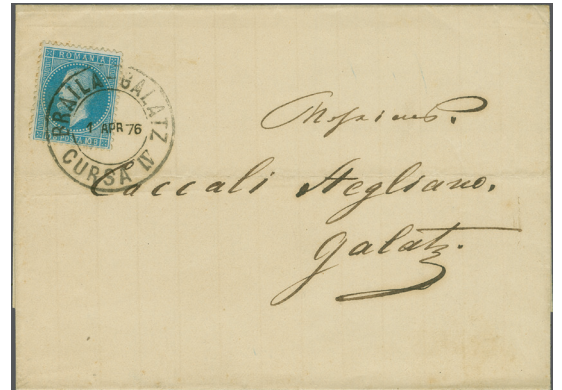 ROMANIA
BRAILA-GALATZ
1 APR 76
CURSA IV
Messieurs.
Caccali Stegliano.
Galatz.